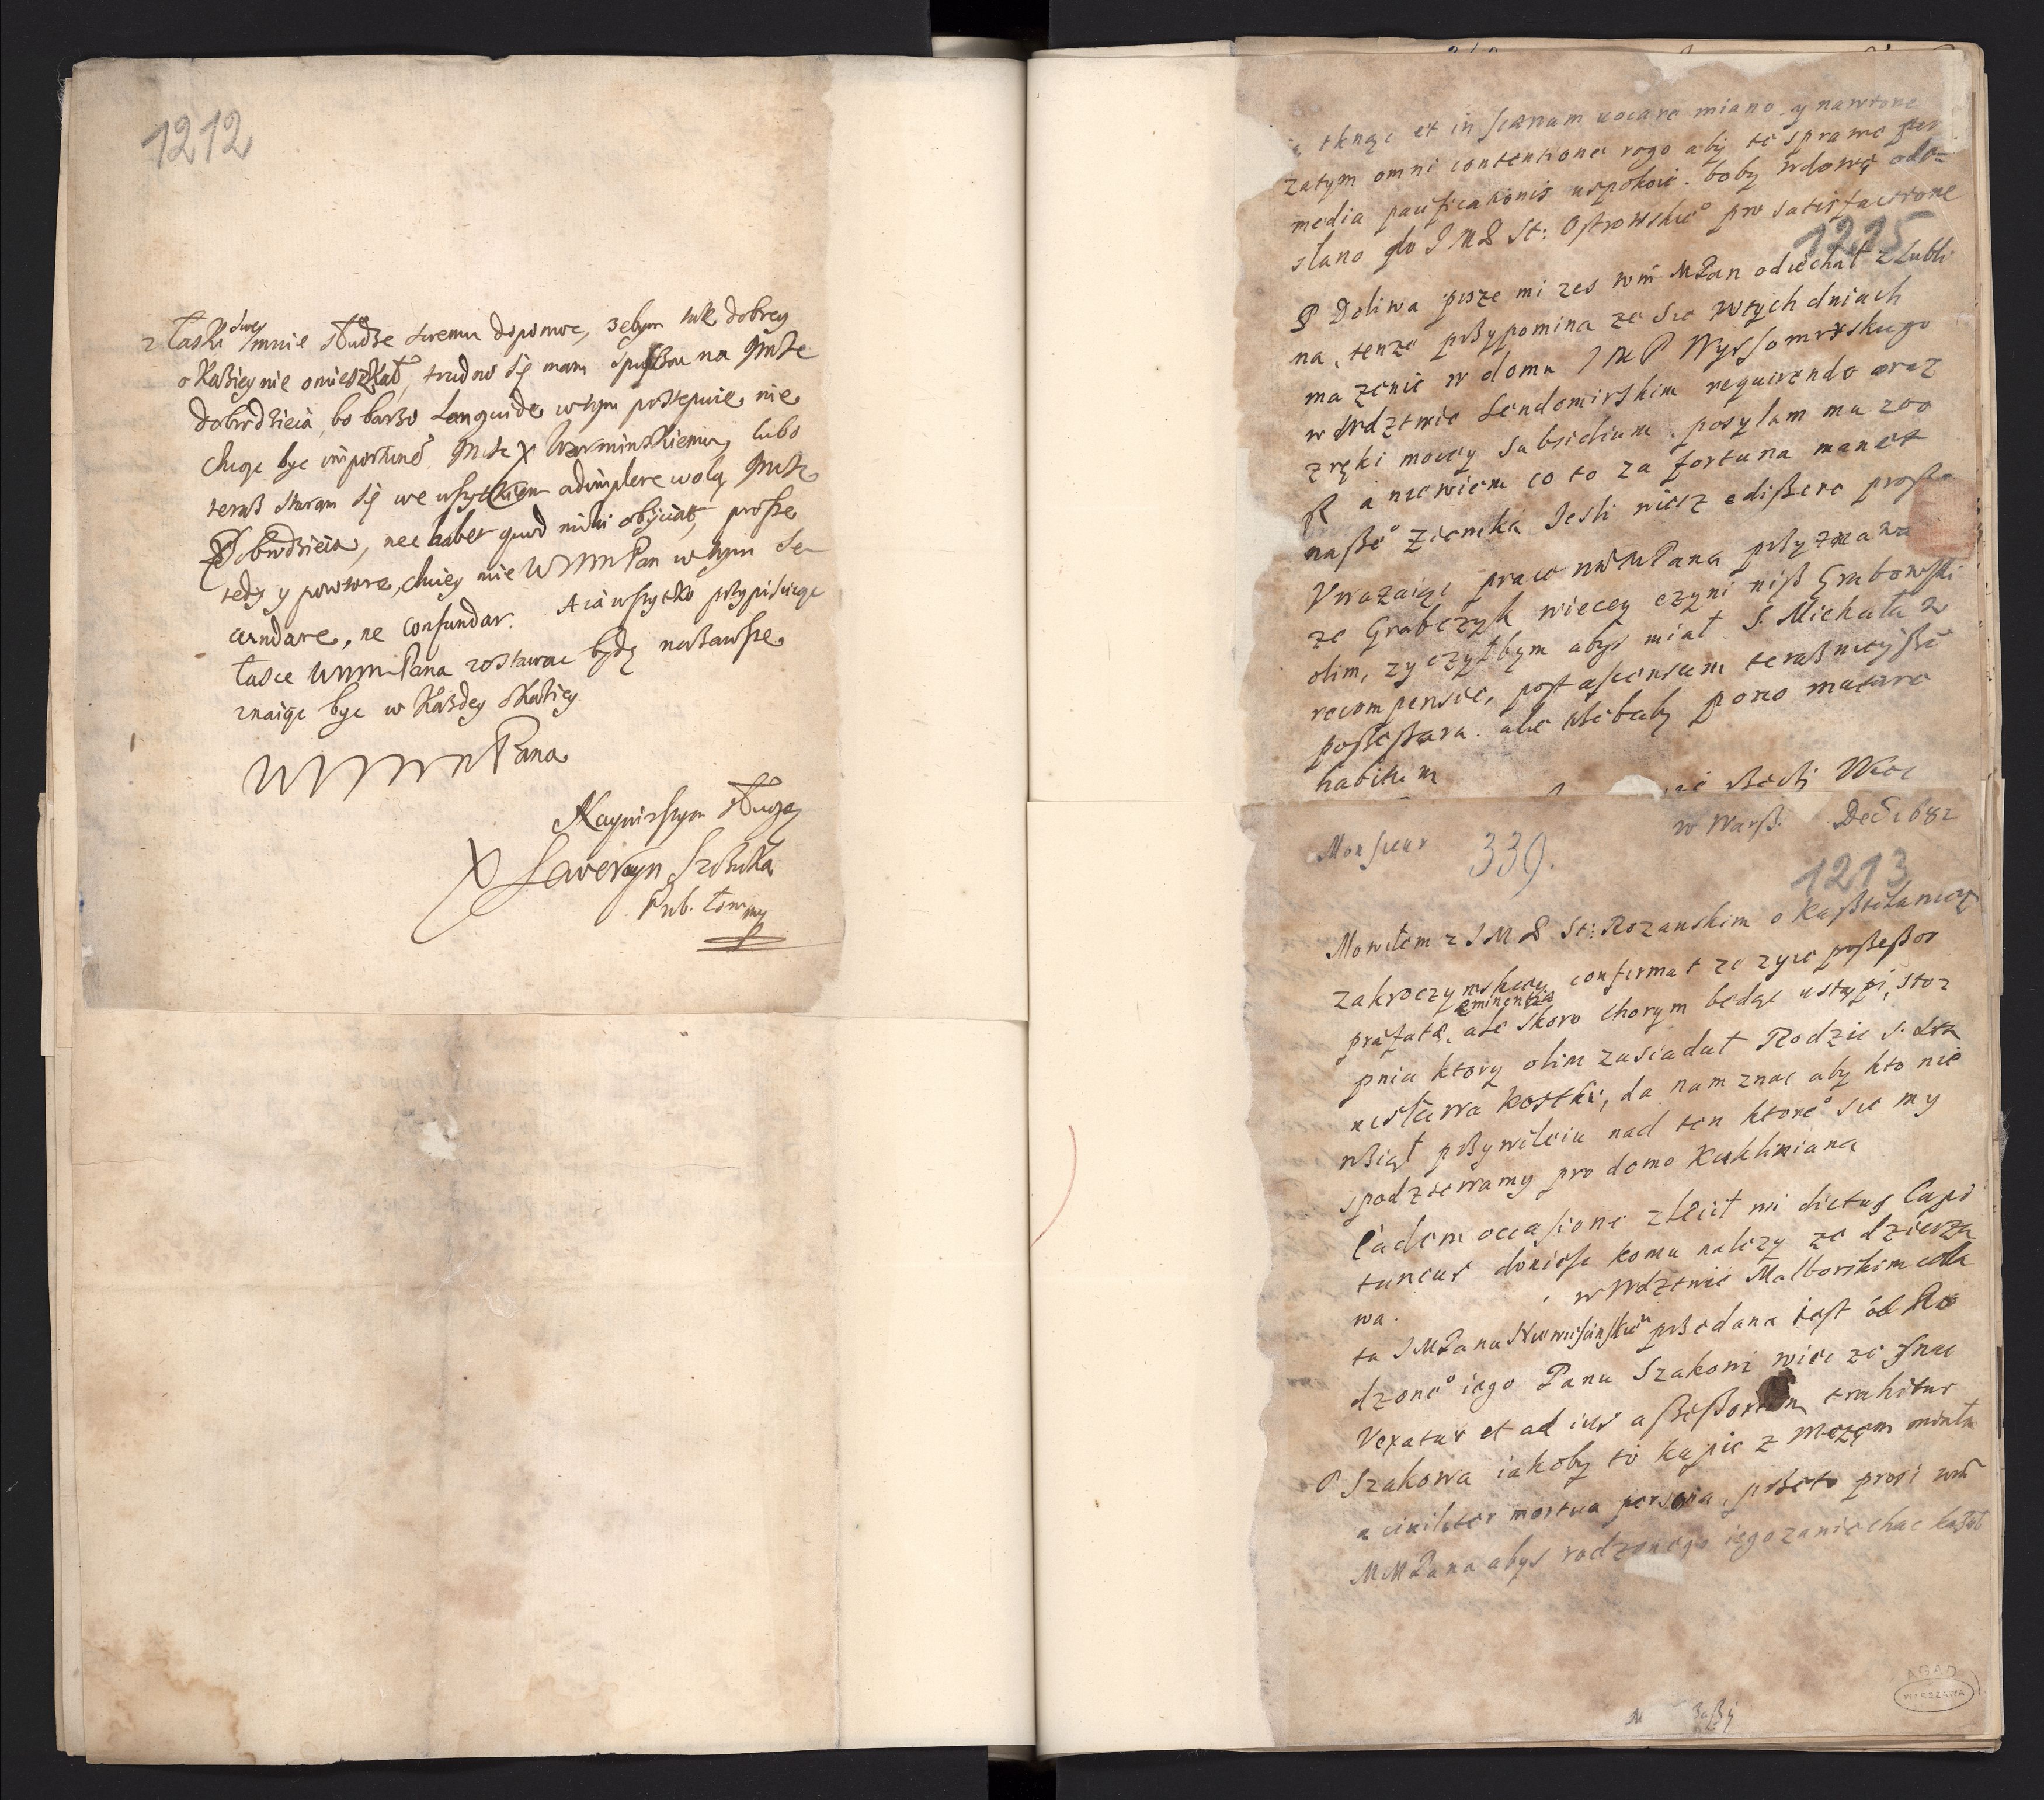 1212
z łaski swey mnie słudze swemu dopomoc, zebym tak dobrey
okaziey nie omieszkał, trudno się mam spuszczac na JmSc
dobrodzieia, bo barzo languide w tym postępuie, nie
chcąc byc importuno JmSc X Warminskiemu, lubo
teraß staram się we wszytkiem adimplere wolą JmSc
Dobrodzieia, nec habet quod mihi obiiciat, prosze
tedy y powtore, chciey mie WMM Pan w tym se-
cundare, ne confundar. A ia wszytko przypisuiąc
łasce WMM Pana zostawac będę na zawsze
znaiąc byc w każdey okaziey
WMM Pana
Nayniższym sługą
X Saweryn Szczuka
Prob. Łom
tknąc et in scenam vocare miano y nawrone
zatym omni contentione rogo aby tę sprawe per
media pacificationis uspokoic. boby wdowę ode=
słano do J M P St: Ostrowskieo pro satisfactione
1215
P Doliwa pisze mi zes wm MPan odiechał z Lubli
na, tenze przypomina ze sie w tych dniach
ma zenic w domu J M P Wyssomirskiego
w Wdztwie Sendomirskim requirendo oraz
z ręki moiey subsidium, posyłam mu 200
R a niewiem co to za fortuna manet
naßeo ziomka Jesli wiesz edißere proße
Uwazaiąc prace wm MPana przyznawa
ze Grabczyk wiecey czyni niß Grabowski
olim, zyczyłbym abys miał S. Michała w
recompensie, post ascensum teraßnieyßeo
poßeßora. ale trzebaby pono mature
habitum
Monsieur 339. w Warß. Dec 1682
1213
Mowiłem z J M P St: Rozanskim o Kaßtelaniey
Zakroczymskiey confirmat ze zyie poßeßor
præfatæ eminentiæ, ale skoro chorym bedąc ustąpi, sto
pnia ktory olim zasiadał Rodzic S. Sta
nisława Kostki, da nam znac aby kto nie
wziął przywileiu nad ten ktoreo sie my
spodziewamy pro domo Kukliniana
Eadem occasione zlecił mi dictus Capi
taneus doniesc komu nalezy ze dzierza
wa. w Wdztwie Malborskim
ta J MPanu przedana iest od Ro
dzoneo iego Panu Szakowi wiec ze snac
Vexatur et ad ius aßeßorium trahitur
P Szakowa iakoby to kupic z Męzem miała
a civiliter mortua persona, przeto prosi wm
M MPana abys rodzonego iego zaniechac kazał
AGAD
WARSZAWA